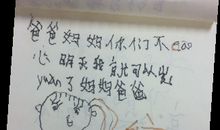 爸爸妈妈你们不
心明天我自就可以出
yuan了妈妈爸爸